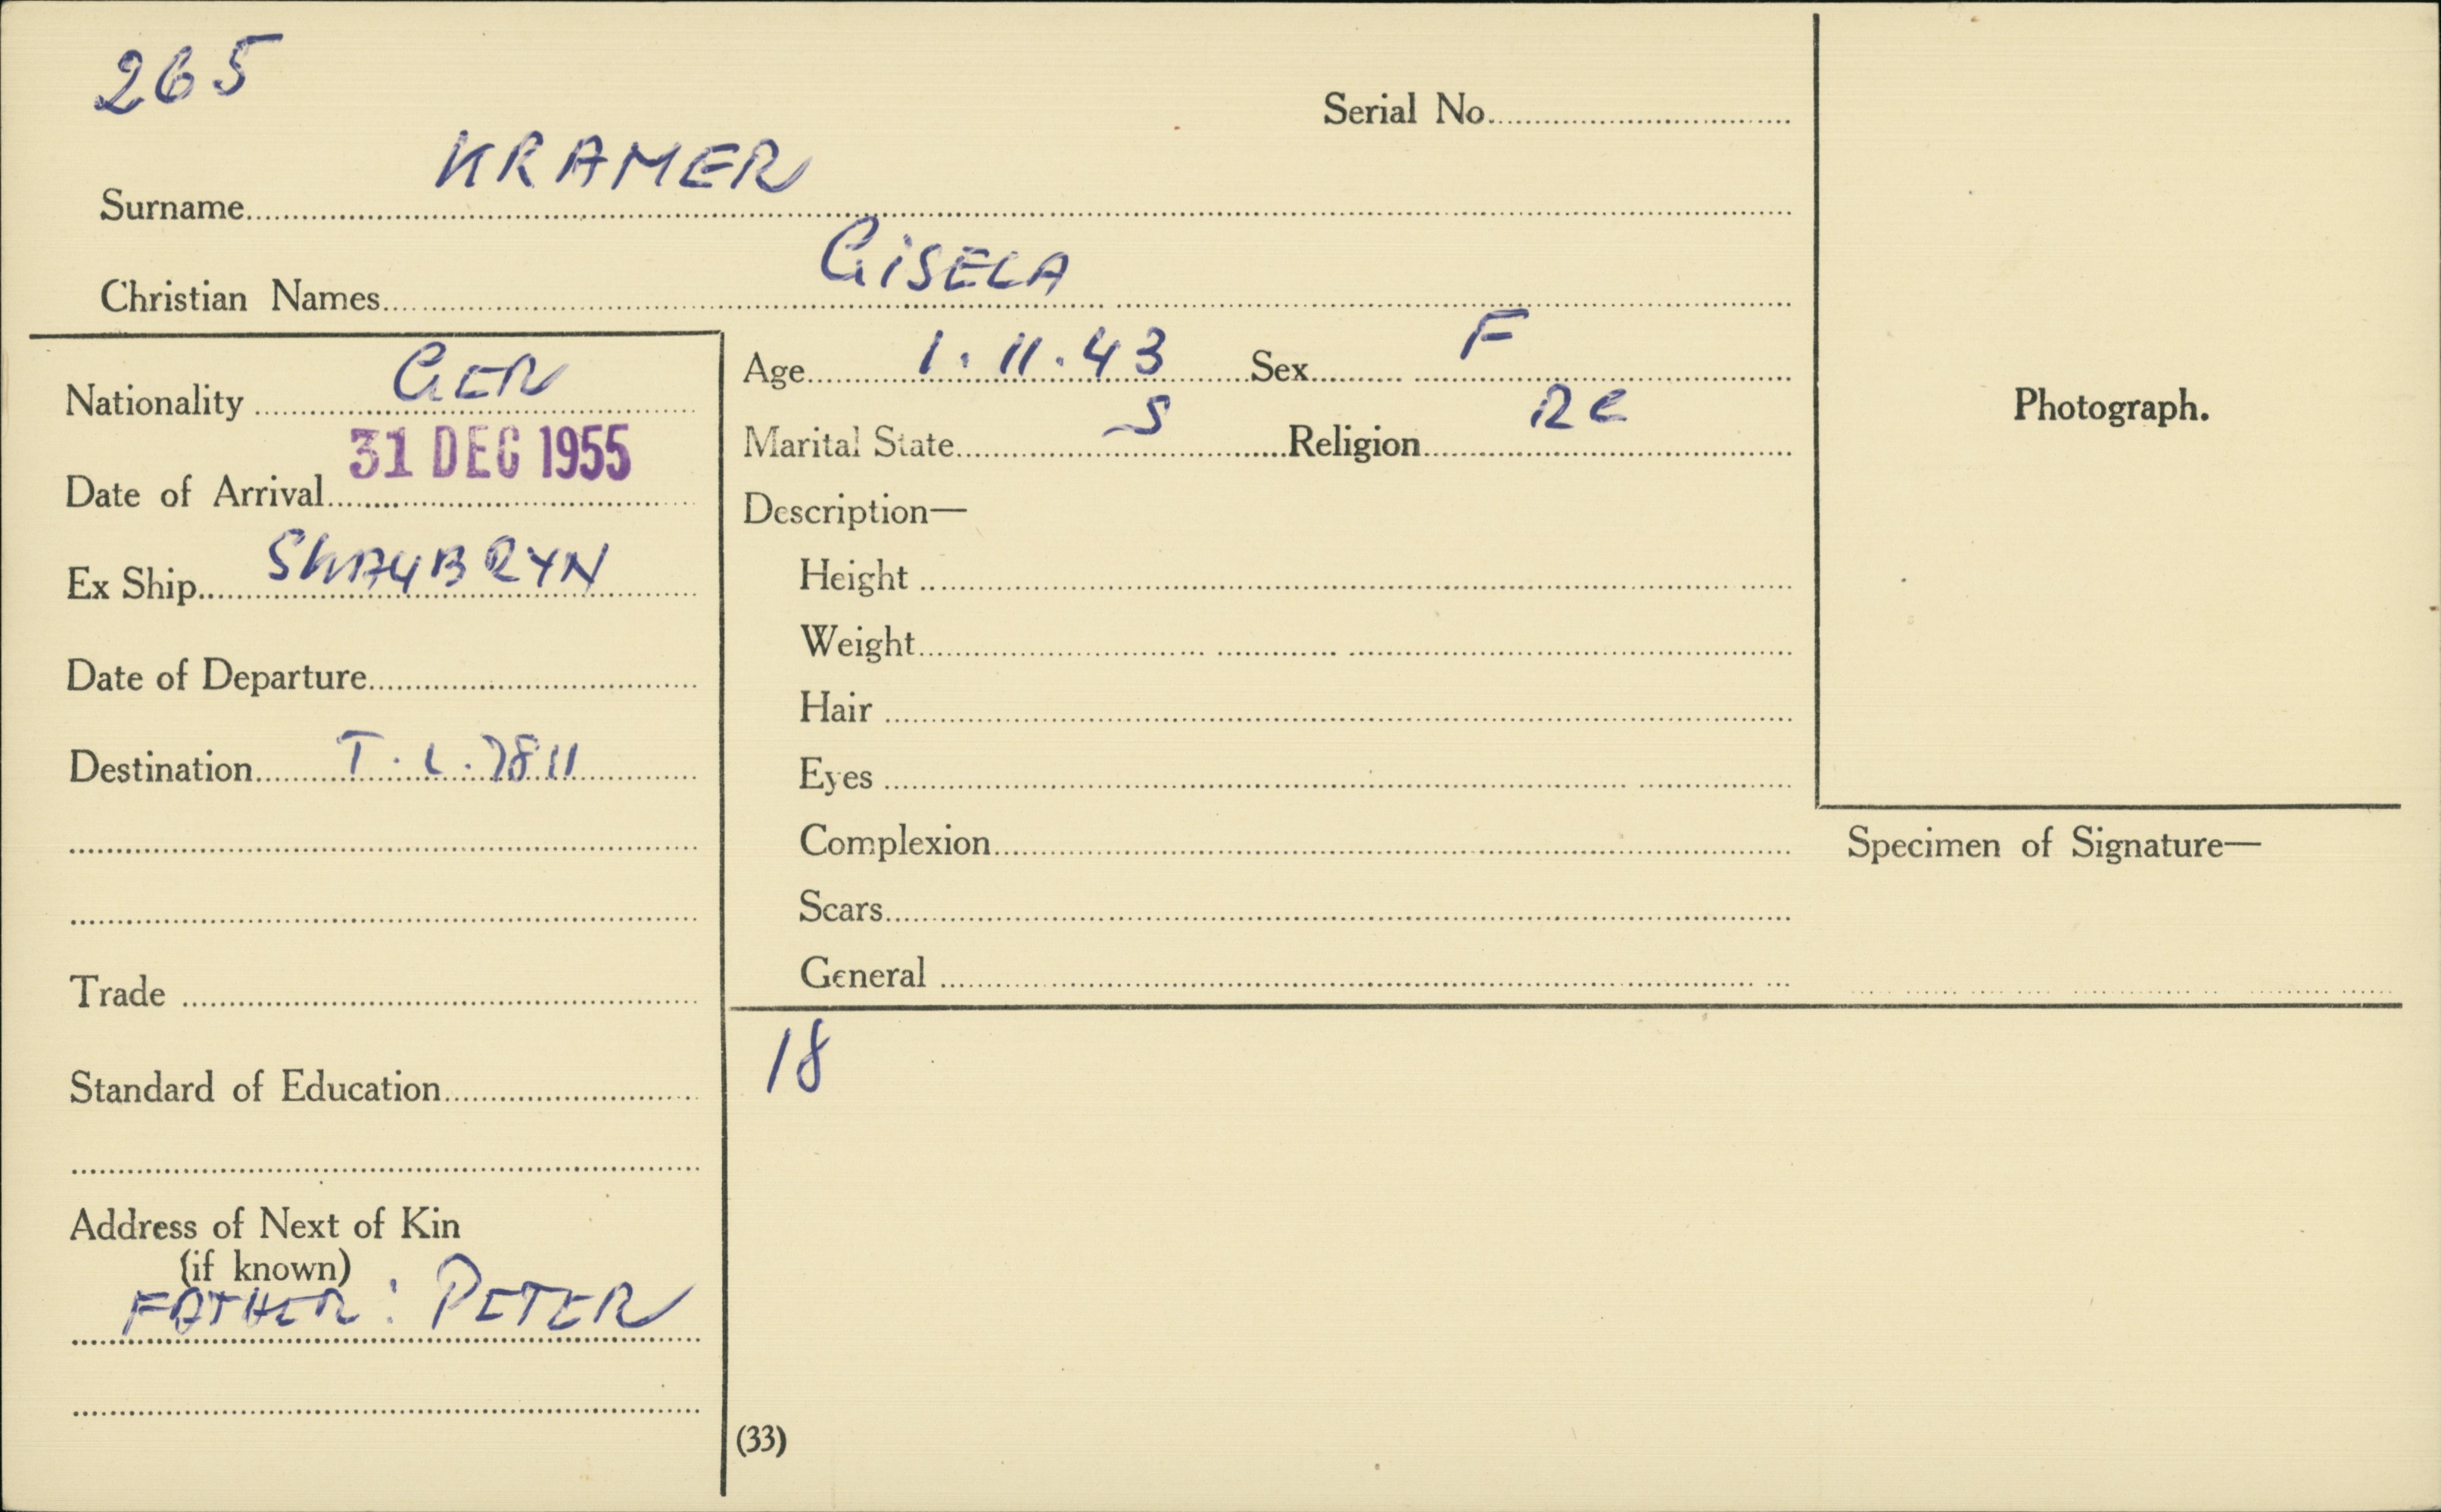 265
Serial No.
KRAMER
Surname
GISELA
Christian Names
Nationality GER
Date of Arrival 31 DEC 1955
Ex Ship SKAUBRYN
Date of Departure
Destination T.L. 7811
Trade
Standard of Education
Address of Next of Kin
(if known)
FATHER: PETER
Age 1.11.43 Sex F
Marital State S Religion RC
Description—
Height
Weight
Hair
Eyes
Complexion
Scars
General
18
(33)
Photograph.
Specimen of Signature—